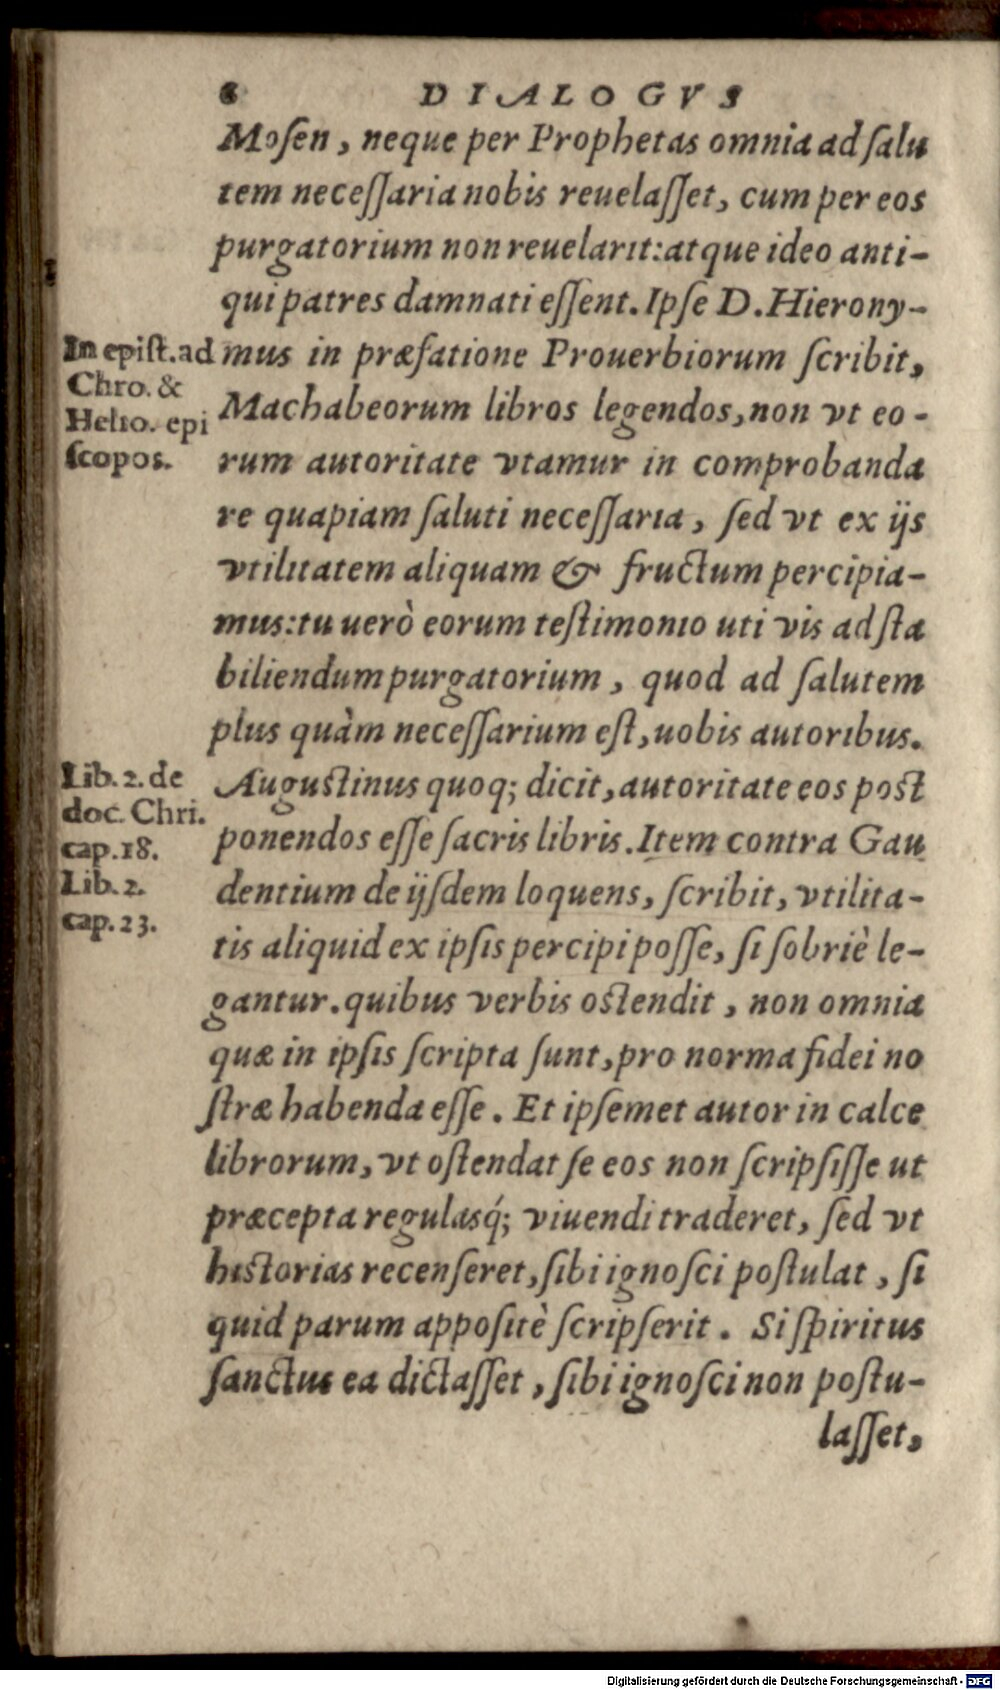 6 DIALOGVS
Moſen, neque per Prophetas omnia ad ſalu
tem neceſſaria nobis reuelaſſet, cum per eos
purgatorium non reuelarit: atque ideo anti-
qui patres damnati eſſent. Ipſe D. Hierony-
mus in præfatione Prouerbiorum ſcribit,
Machabeorum libros legendos, non vt eo-
rum autoritate vtamur in comprobanda
re quapiam ſaluti neceſſaria, ſed vt ex ijs
vtilitatem aliquam & fructum percipia-
mus: tu uerò eorum teſtimonio uti vis ad ſta
biliendum purgatorium, quod ad ſalutem
plus quàm neceſſarium eſt, uobis autoribus.
Auguſtinus quoq; dicit, autoritate eos poſt
ponendos eſſe ſacris libris. Item contra Gau
dentium de ijſdem loquens, ſcribit, vtilita-
tis aliquid ex ipſis percipi poſſe, ſi ſobriè le-
gantur. quibus verbis oſtendit, non omnia
quæ in ipſis ſcripta ſunt, pro norma fidei no
ſtræ habenda eſſe. Et ipſemet autor in calce
librorum, vt oſtendat ſe eos non ſcripſiſſe ut
præcepta regulasq́; viuendi traderet, ſed vt
hiſtorias recenſeret, ſibi ignoſci poſtulat, ſi
quid parum appoſitè ſcripſerit. Si ſpiritus
ſanctus ea dictaſſet, ſibi ignoſci non poſtu-
laſſet,
In epiſt. ad
Chro. &
Helio. epi
ſcopos.
Lib. 2. de
doc. Chri.
cap. 18.
Lib. 2.
cap. 23.
Digitalisierung gefördert durch die Deutsche Forschungsgemeinschaft - DFG